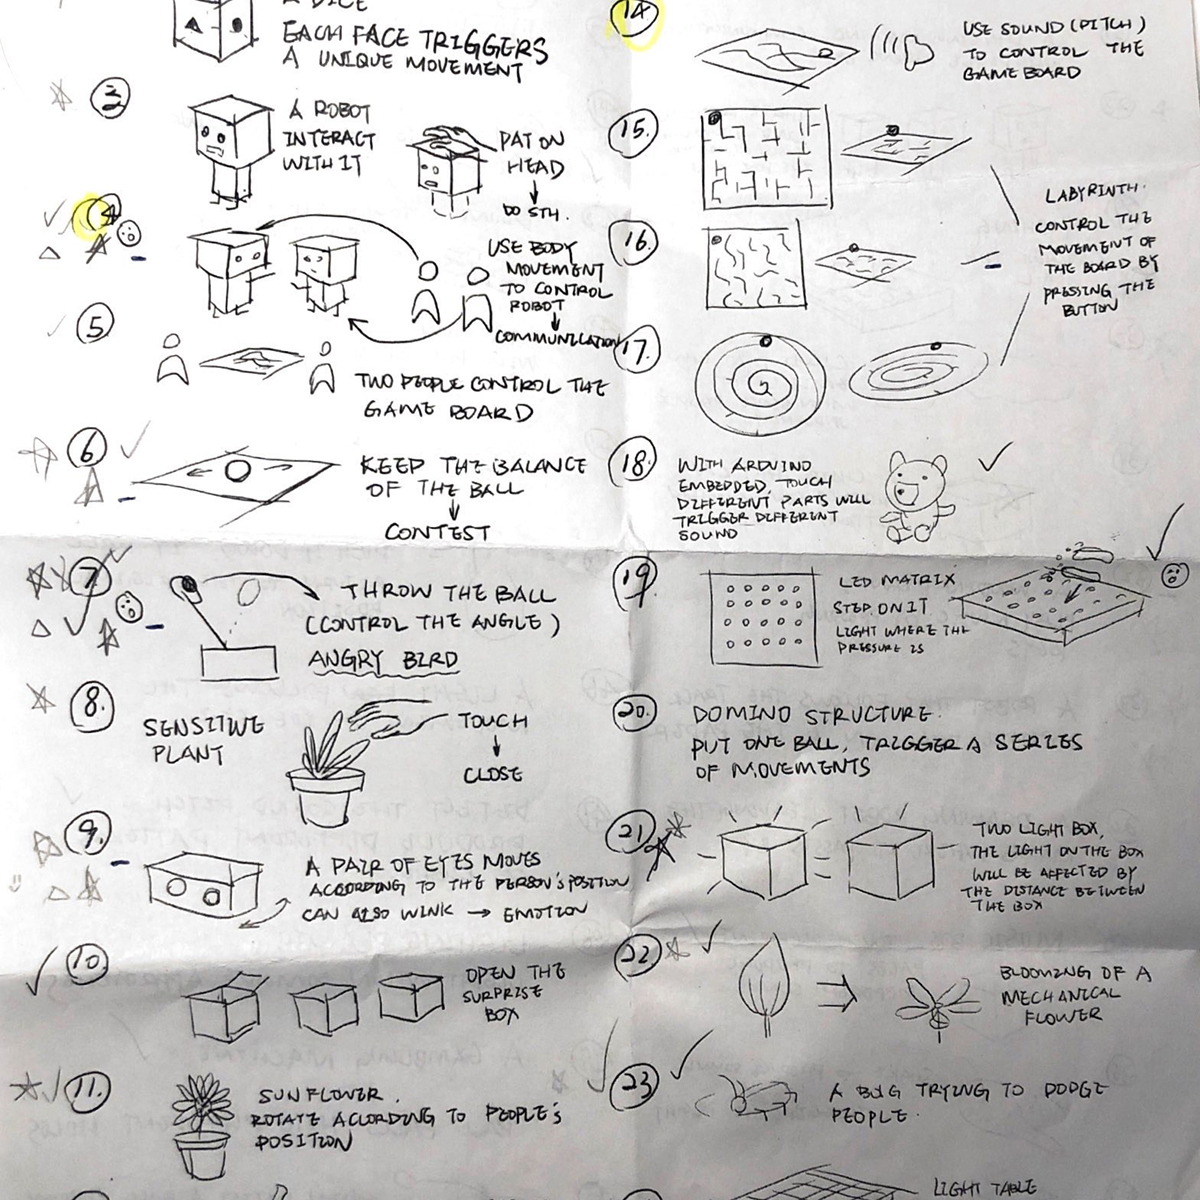 A DICE
EACH FACE TRIGGERS
A UNIQUE MOVEMENT
3
A ROBOT
INTERACT
WITH IT
PAT ON
HEAD
DO STH.
4
USE BODY
MOVEMENT
TO CONTROL
ROBOT
COMMUNICATION
5
TWO PEOPLE CONTROL THE
GAME BOARD
6
KEEP THE BALANCE
OF THE BALL
CONTEST
7
THROW THE BALL
(CONTROL THE ANGLE)
ANGRY BIRD
8.
SENSITIVE
PLANT
TOUCH
CLOSE
9.
A PAIR OF EYES MOVES
ACCORDING TO THE PERSON'S POSITION
CAN ALSO WINK → EMOTION
10
OPEN THE
SURPRISE
BOX
11.
SUNFLOWER.
ROTATE ACORDING TO PEOPLE'S
POSITION
14
USE SOUND (PITCH)
TO CONTROL THE
GAME BOARD
15.
16
17.
LABYRINTH.
CONTROL THE
MOVEMENT OF
THE BOARD BY
PRESSING THE
BUTTON
18.
WITH ARDUINO
EMBEDDED, TOUCH
DIFFERENT PARTS WILL
TRIGGER DIFFERENT
SOUND
19
LED MATRIX
STEP ON IT
LIGHT WHERE THE
PRESSURE IS
20.
DOMINO STRUCTURE.
PUT ONE BALL, TRIGGER A SERIES
OF MOVEMENTS
21
TWO LIGHT BOX,
THE LIGHT ON THE BOX
WILL BE AFFECTED BY
THE DISTANCE BETWEEN
THE BOX
22
BLOOMING OF A
MECHANICAL
FLOWER
23
A BUG TRYING TO DODGE
PEOPLE.
LIGHT TABLE